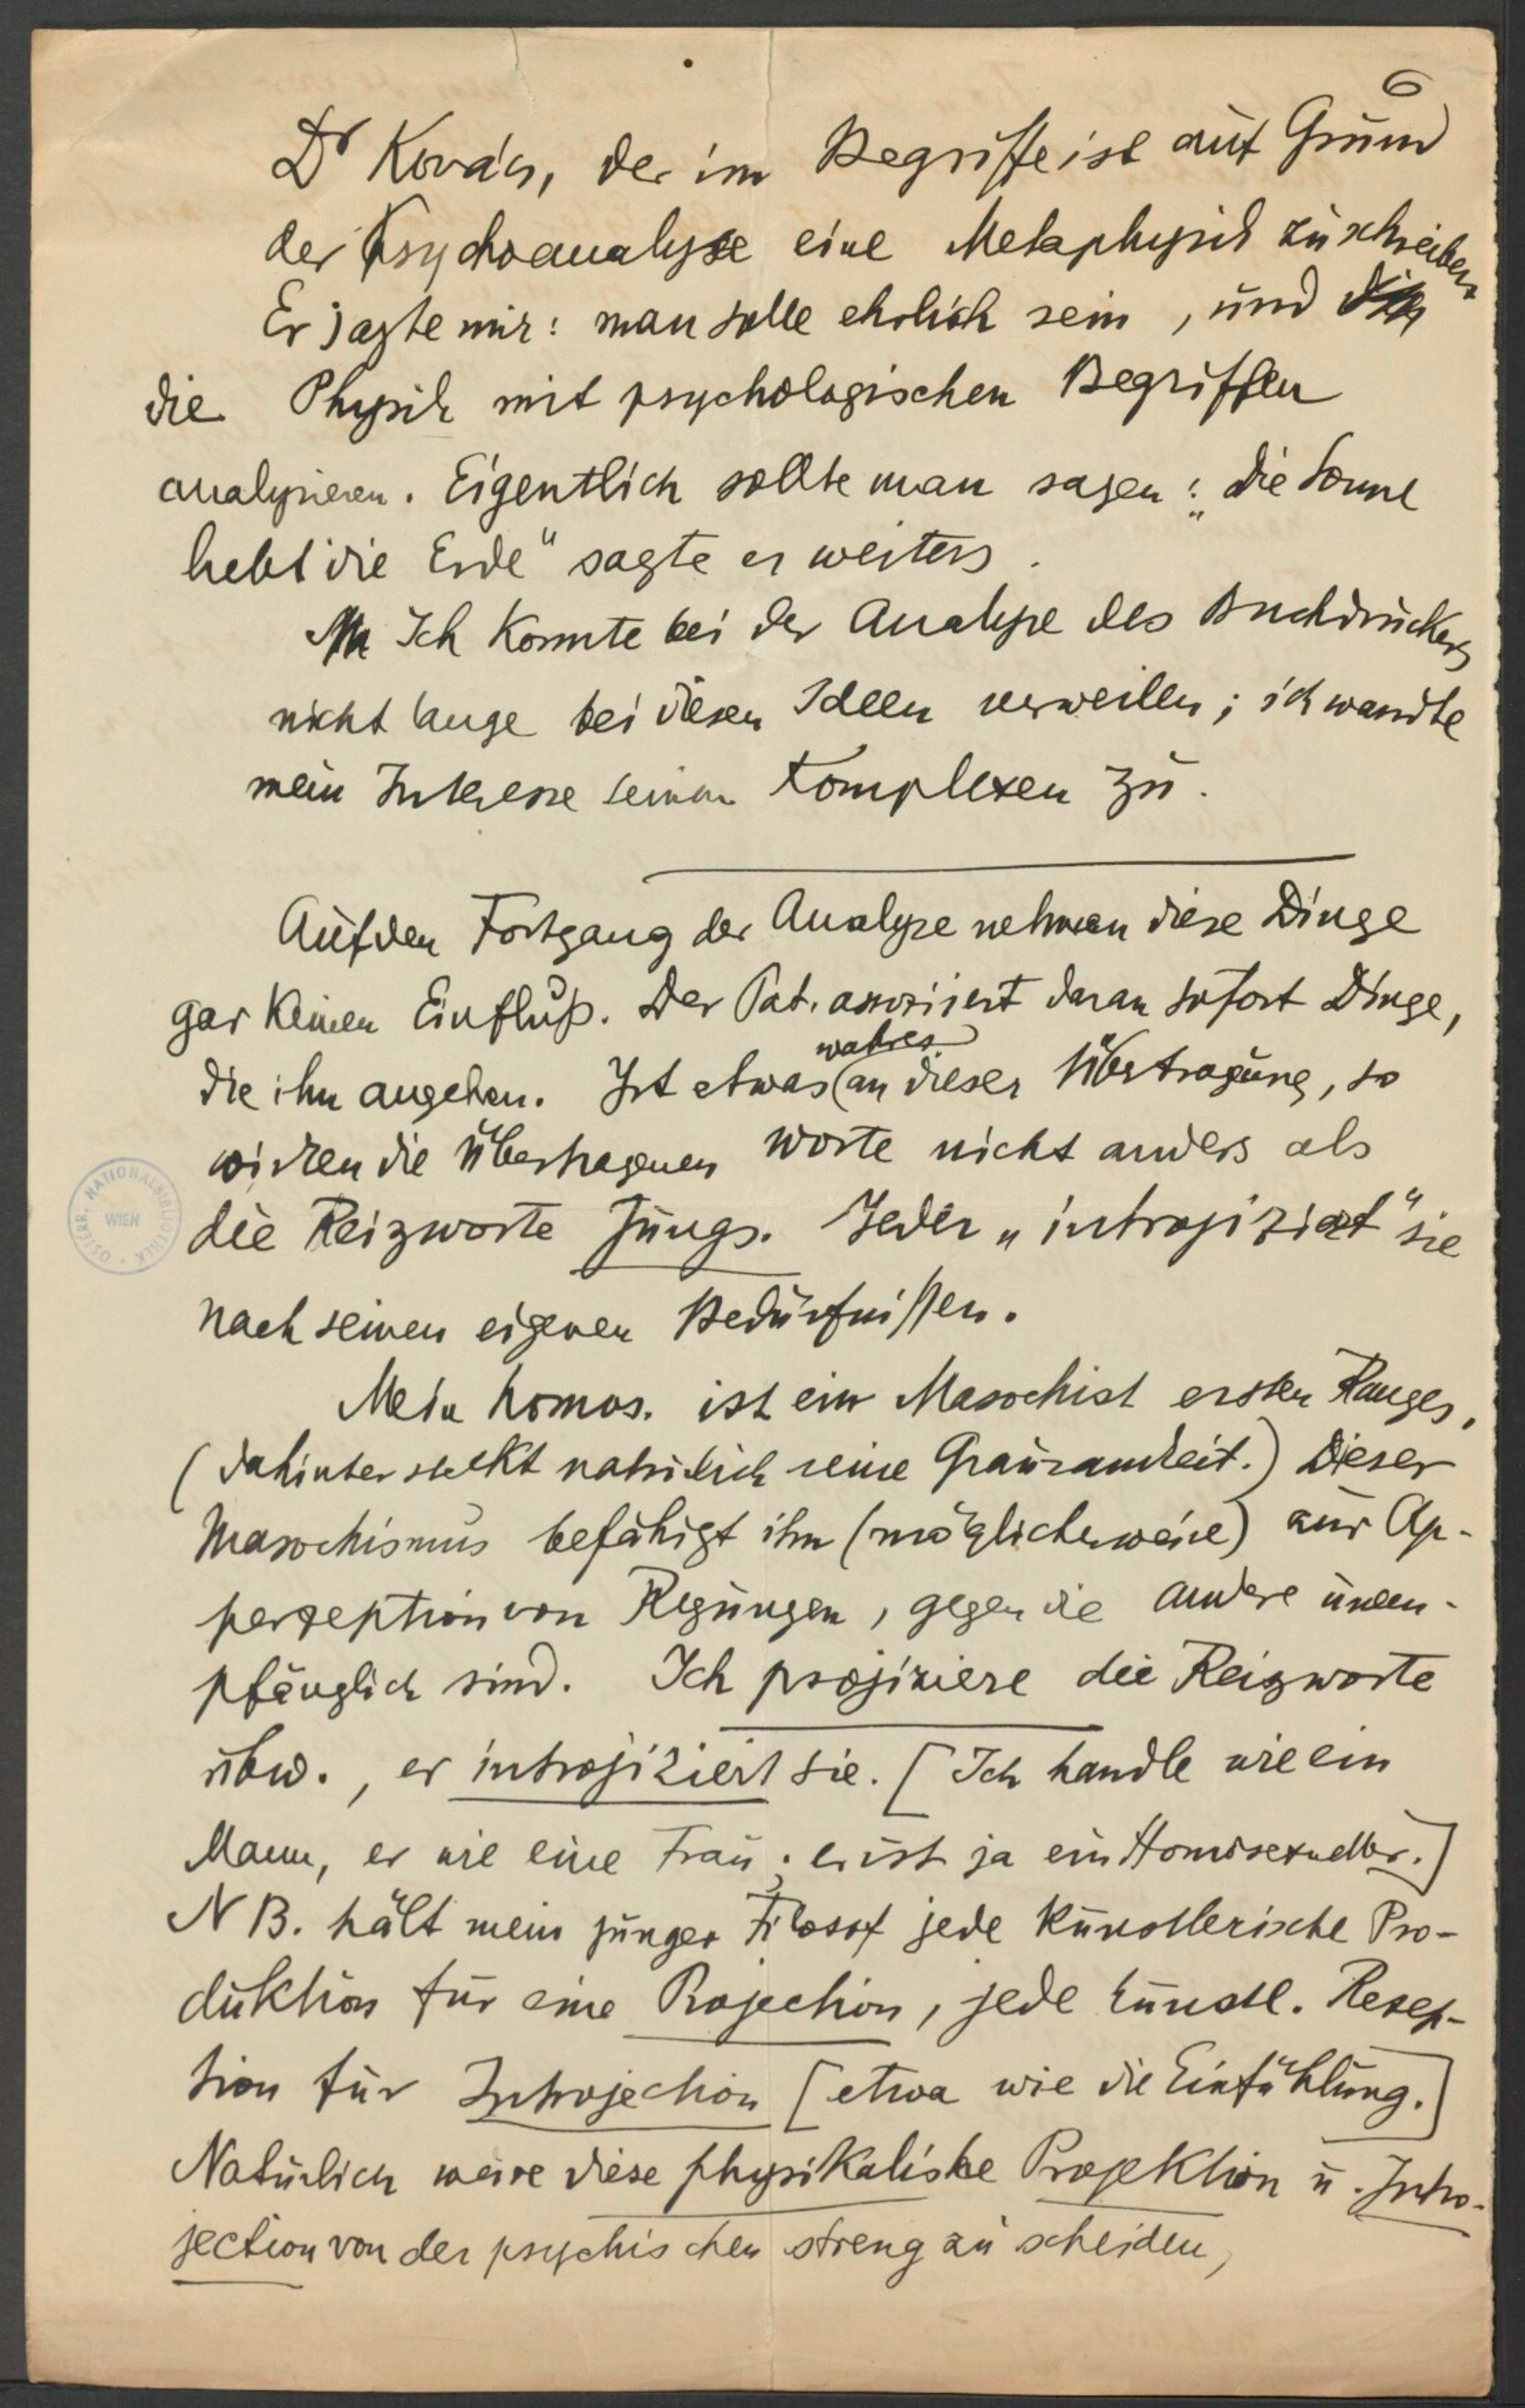 6
Dr Kovács, der im Begriffe ist auf Grund
der Psychoanalyse eine Metaphysik zu schreiben
Er sagte mir: man solle ehrlich sein, und
die Physik mit psychologischen Begriffen
analysieren. Eigentlich sollte man sagen: „die Sonne
liebt die Erde“ sagte er weiters.
Ich konnte bei der Analyse des Buchdruckers
nicht lange bei diesen Ideen verweilen; ich wandte
mein Interesse seinen Komplexen zu.
Auf den Fortgang der Analyse nehmen diese Dinge
gar keinen Einfluß. Der Pat. assoziiert daran sofort Dinge,
die ihn angehen. Ist etwas wahres an dieser Übertragung, so
wirken die übertragenen Worte nicht anders als
die Reizworte Jungs. Jeder „introjiziert“ sie
nach seinen eigenen Bedürfnissen.
Mein homos. ist ein Masochist ersten Ranges,
(dahinter steckt natürlich seine Grausamkeit.) Dieser
Masochismus befähigt ihn (möglicherweise) zur Ap-
perzeption von Regungen, gegen die andere unem-
pfänglich sind. Ich projiziere die Reizworte
ubw., er introjiziert sie. [Ich handle wie ein
Mann, er wie eine Frau; er ist ja ein Homosexueller.]
NB. hält mein junger Filosof jede künstlerische Pro-
duktion für eine Projection, jede künstl. Rezep-
tion für Introjection [etwa wie die Einfühlung.]
Natürlich wäre diese physikalische Projektion u. Intro-
jection von der psychischen streng zu scheiden,
ÖSTERR. NATIONALBIBLIOTHEK WIEN